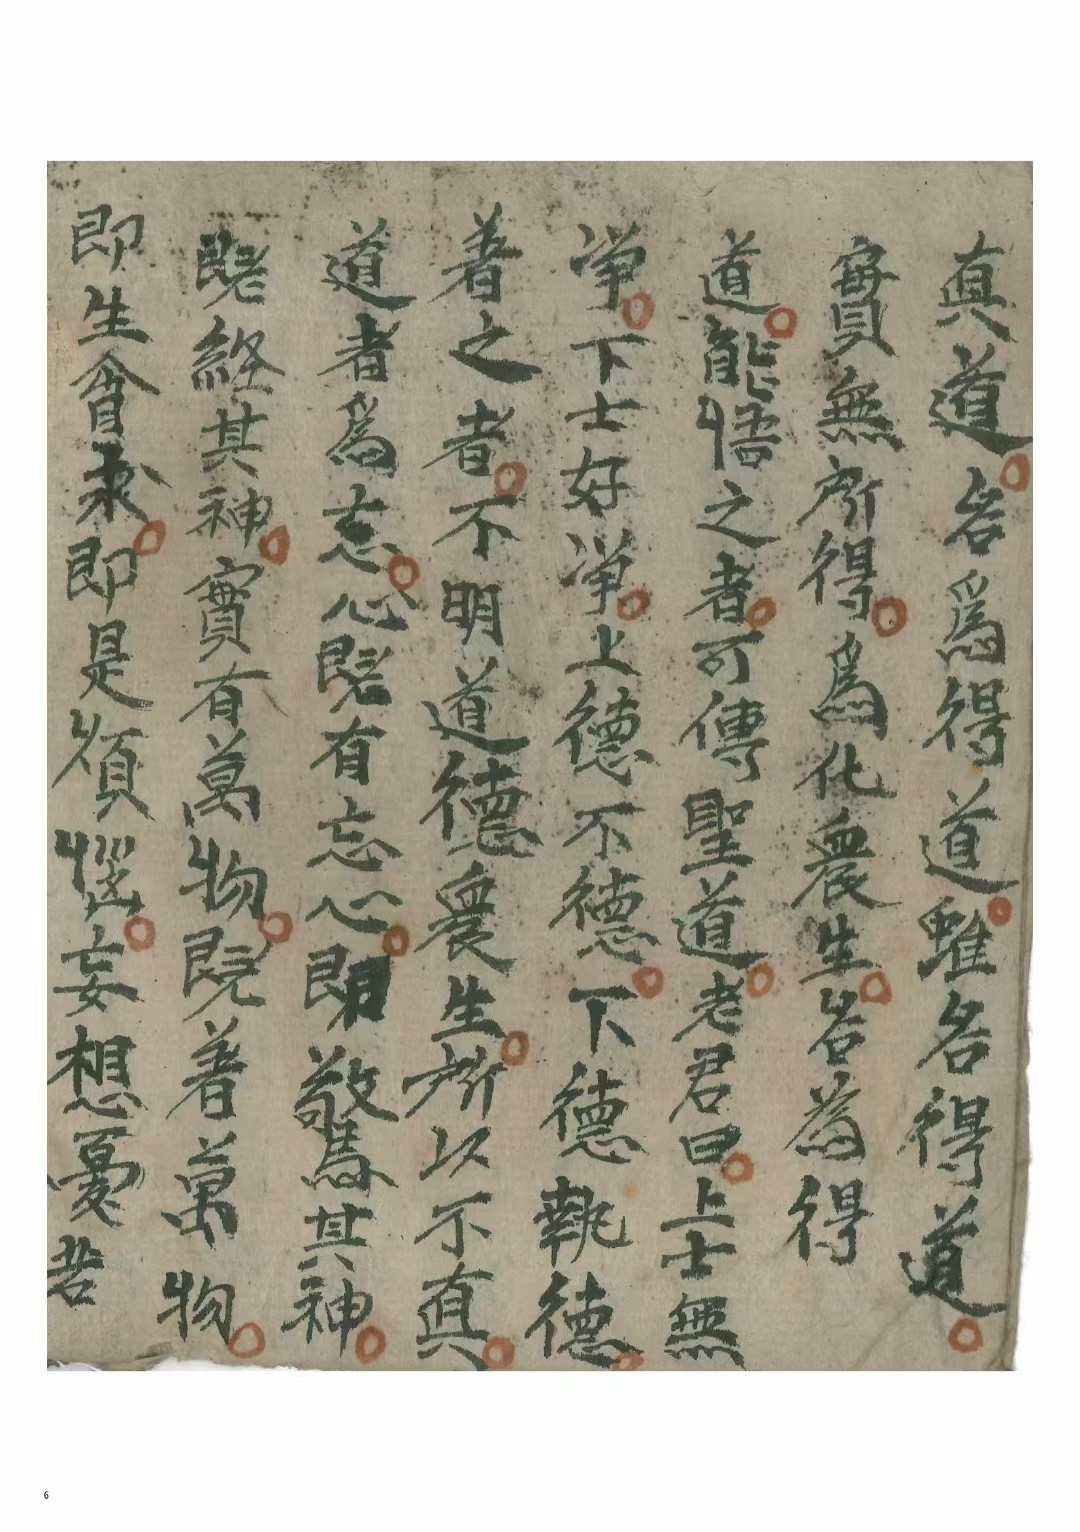 真道名爲得道雖名得道
實無所得爲化衆生名為得
道能悟之者可傳聖道老君曰上士無
净下士好净上德不德下德執德
著之者不明道德衆生所以不真
道者爲忘心既有忘心即驚其神
既經其神實有萬物既著萬物
即生貪求即是煩惱妄想憂苦
6